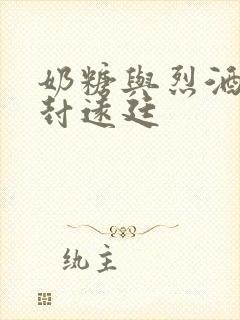 奶糖與烈酒
封遠廷
紈主